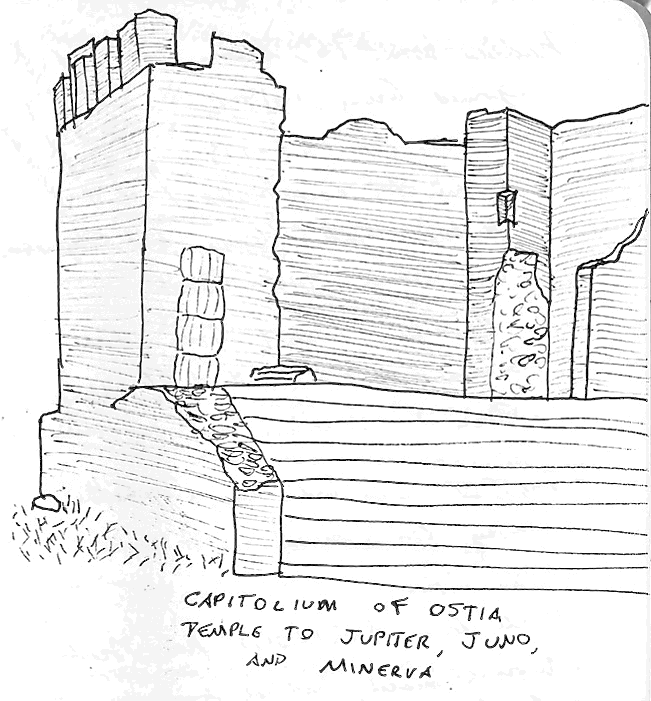 CAPITOLIUM OF OSTIA
TEMPLE TO JUPITER, JUNO,
AND MINERVA